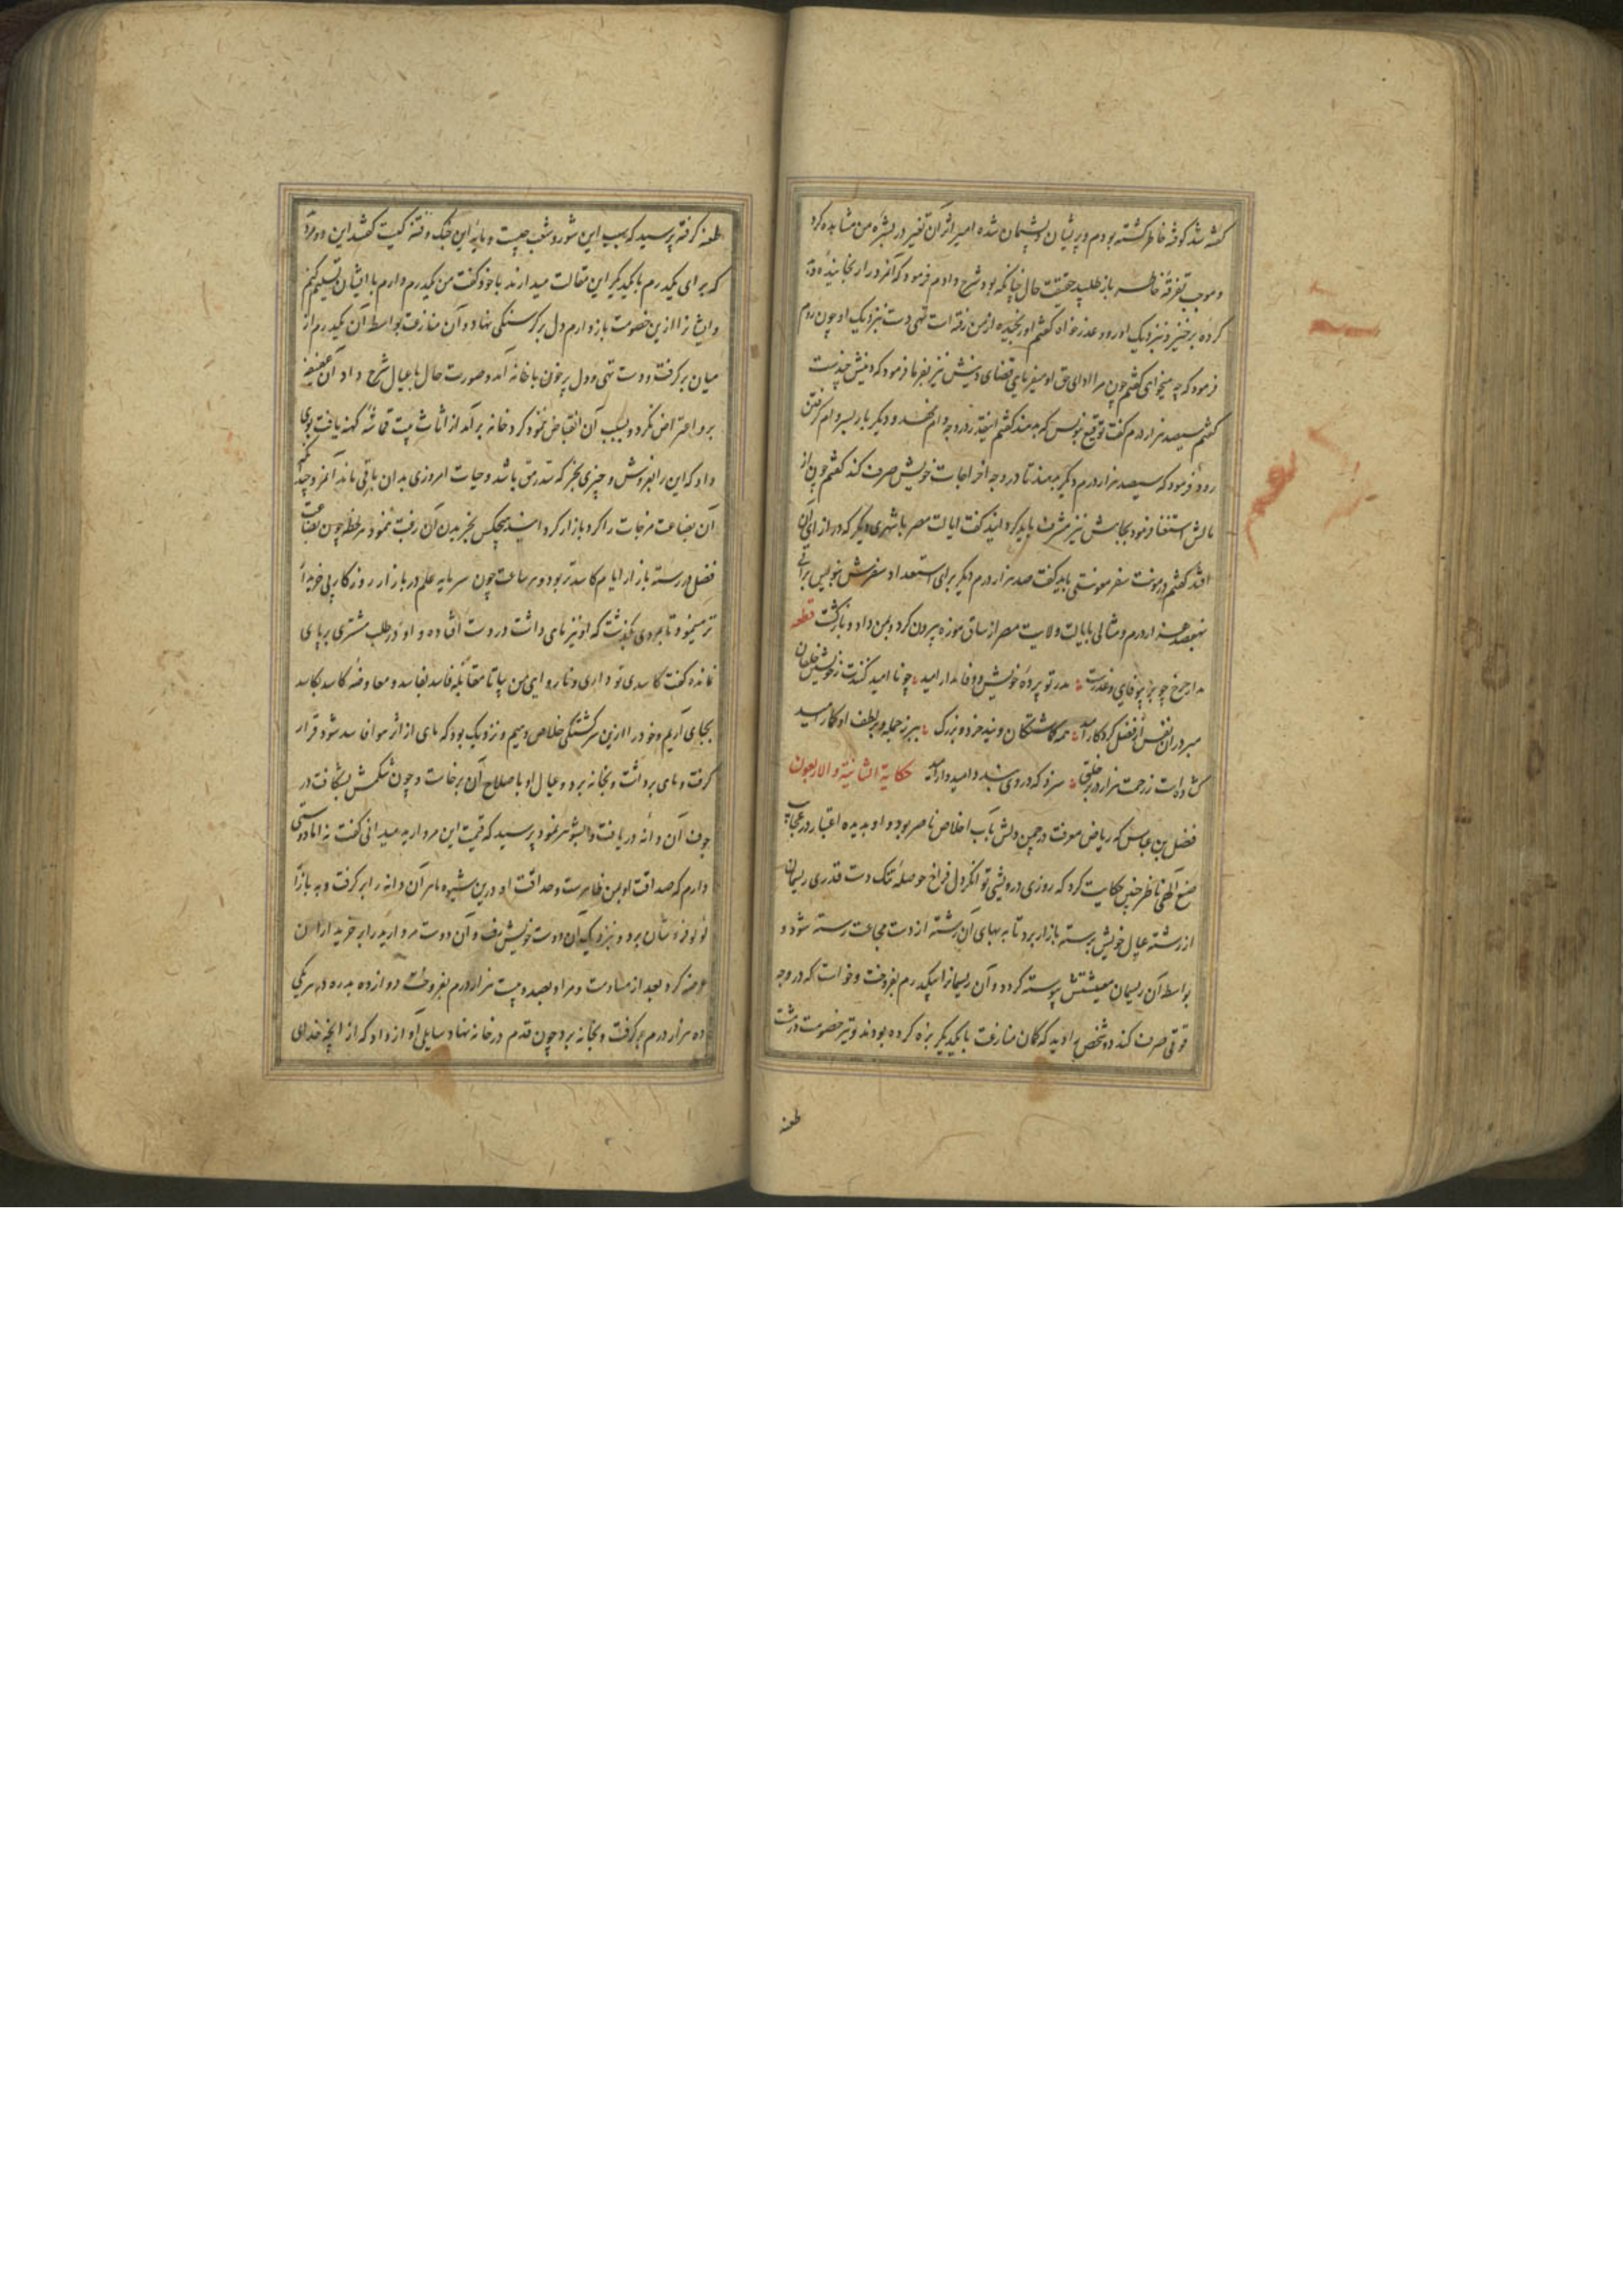 کفته شد کوفته خاطر کشته بودم و پریشان و پشیمان شده امیر اثر آن تغیر در بشره من مشاهده کرد
و موجب تفرقه خاطر باز طلبید حقیقت حال چنانکه بود شرح دادم فرمود که آنمرد را رنجانیده
کرده برخیز و بنزدیک او رو و عذر خواه کفتم او رنجیده از من رفته است تهی دست بنزدیک او چون روم
فرمود که چه میخواهی کفتم چون مرا ادای حق او میفرمایی قضای دینش نیز بفرما فرمود که دینش چندست
کفتم سیصد هزار درم کفت توقیع بنویس که بدهند کفتم اینقدر در وجه وام نهد و دیکر بار بسر وام کرفتن
رود فرمود که سیصد هزار درم دیکر بدهند تا در وجه اخراجات خویش صرف کند کفتم چون از
مالش استغنا فرمود بجاهش نیز مشرف باید کردانید کفت ایالت مصر یا شهری دیکر که در ازای آن
افتد کفتم در مونت سفر معونتی باید کفت صد هزار درم دیکر برای استعداد سفرش بنویس براتی
بهفصد هزار درم و مثالی بایالت ولایت مصر از ساق موزه بیرون کرد و بمن داد و بازکشت قطعه
مدار چرخ چو بر بیوفایی و غدرست مدر تو پرده خویش و وفا مدار امید چو ناامید کنندت ز خویش خلقان
مبر در آن نفس از فضل کردکار امید همه کاشتکان ویند خرد و بزرک ببر ز جمله و بر لطف او کار امید
کشاده است ز رحمت هزار در بر خلق سزد که در وی بندد امیدوار امید حکایة الثانیة والاربعون
فضل بن عباس که ریاض معرفت در چمن دلش بآب اخلاص ناضر بود و او بدیده اعتبار در عجایب
صنع آلهی ناظر چنین حکایت کرد که روزی درویشی توانکر دل فراخ حوصله تنک دست قدری ریسمان
از رشته عیال خویش برسته بازار برد تا به بهای آن رشته از دست مجاعت رسته شود و
بواسطه آن ریسمان معیشتش پیوسته کردد و آن ریسمانرا بیکدرم بفروخت و خواست که در وجه
قوتی صرف کند دو شخص را دید که کمان منازعت با یکدیکر بزه کرده بودند و تیر خصومت در شست
طعنه
طعنه کرفته پرسید که سبب این شور و شغب چیست و مایه این جنک و فتنه کیست کفتند این دو مرد
که برای یکدرم با یکدیکر این مقالت میدارند با خود کفت من یکدرم دارم بایشان تسلیم کنم
و ایشانرا ازین خصومت باز دارم دل بر کرسنکی بنهاد و آن منازعت بواسطه آن یکدرم از
میان برکرفت و دست تهی و دل پر خون با خانه آمد و صورت حال با عیال شرح داد آن عفیفه
برو اعتراض نکرد و بسبب آن انقباض ننمود کرد خانه برآمد از اثاث بیت قماشه کهنه یافت بوی
داد که این را بفروش و چیزی بخر که سد رمق باشد و حیات امروزی بدان باقی ماند آنمرد چندانکه
آن بضاعت مزجات را کرد بازار کردانید هیچکس بخریدن آن رغبت ننمود هر لحظه چون بضاعت
فضل در رسته بازار ایام کاسدتر بود و هر ساعت چون سرمایه علم در بازار روزکار بی خریدار
تر مینمود تا بمردی بکذشت که او نیز ماهی داشت در دست افتاده و او در طلب مشتری بر پای
مانده کفت کاسدی تو داری و ناروایی من بیا تا مقابله فاسد بفاسد و معاوضه کاسد بکاسد
بجای آریم و خود را ازین سرکشتکی خلاص دهیم و نزدیک بود که ماهی از اثر هوا فاسد شود قرار
کرفت و ماهی برداشت و بخانه برد و عیال او با صلاح آن برخاست و چون شکمش بشکافت در
جوف آن دانه در یافت و با شوهر نمود پرسید که قیمت این مروارید میدانی کفت نه اما دوستی
دارم که صداقت او بمن ظاهرست و حذاقت او درین شیوه ماهر آن دانه را برکرفت و به بازار
لؤلؤ فروشان برد و بنزدیک آن دوست خویش رفت و آن دوست مروارید را بر خریداران
عرضه کرد بعد از مساومت و مراوده بصد و بیست هزار درم بفروخت دوازده بدره در هر یکی
ده هزار درم برکرفت و بخانه برد چون قدم در خانه نهاد سایلی آواز داد که از آنچه خدای